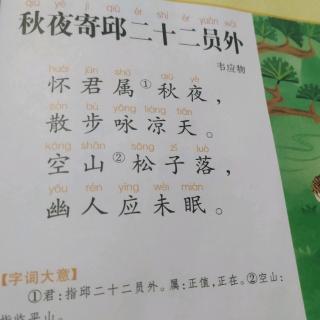 qiū yè jì qiū èr shí èr yuán wài
秋夜寄邱二十二员外
韦应物
huái jūn shǔ qiū yè
怀君属①秋夜，
sàn bù yǒng liáng tiān
散步咏凉天。
kōng shān sōng zǐ luò
空山②松子落，
yōu rén yīng wèi mián
幽人应未眠。
【字词大意】
①君：指邱二十二员外。属：正值，正在。②空山：
指临平山。